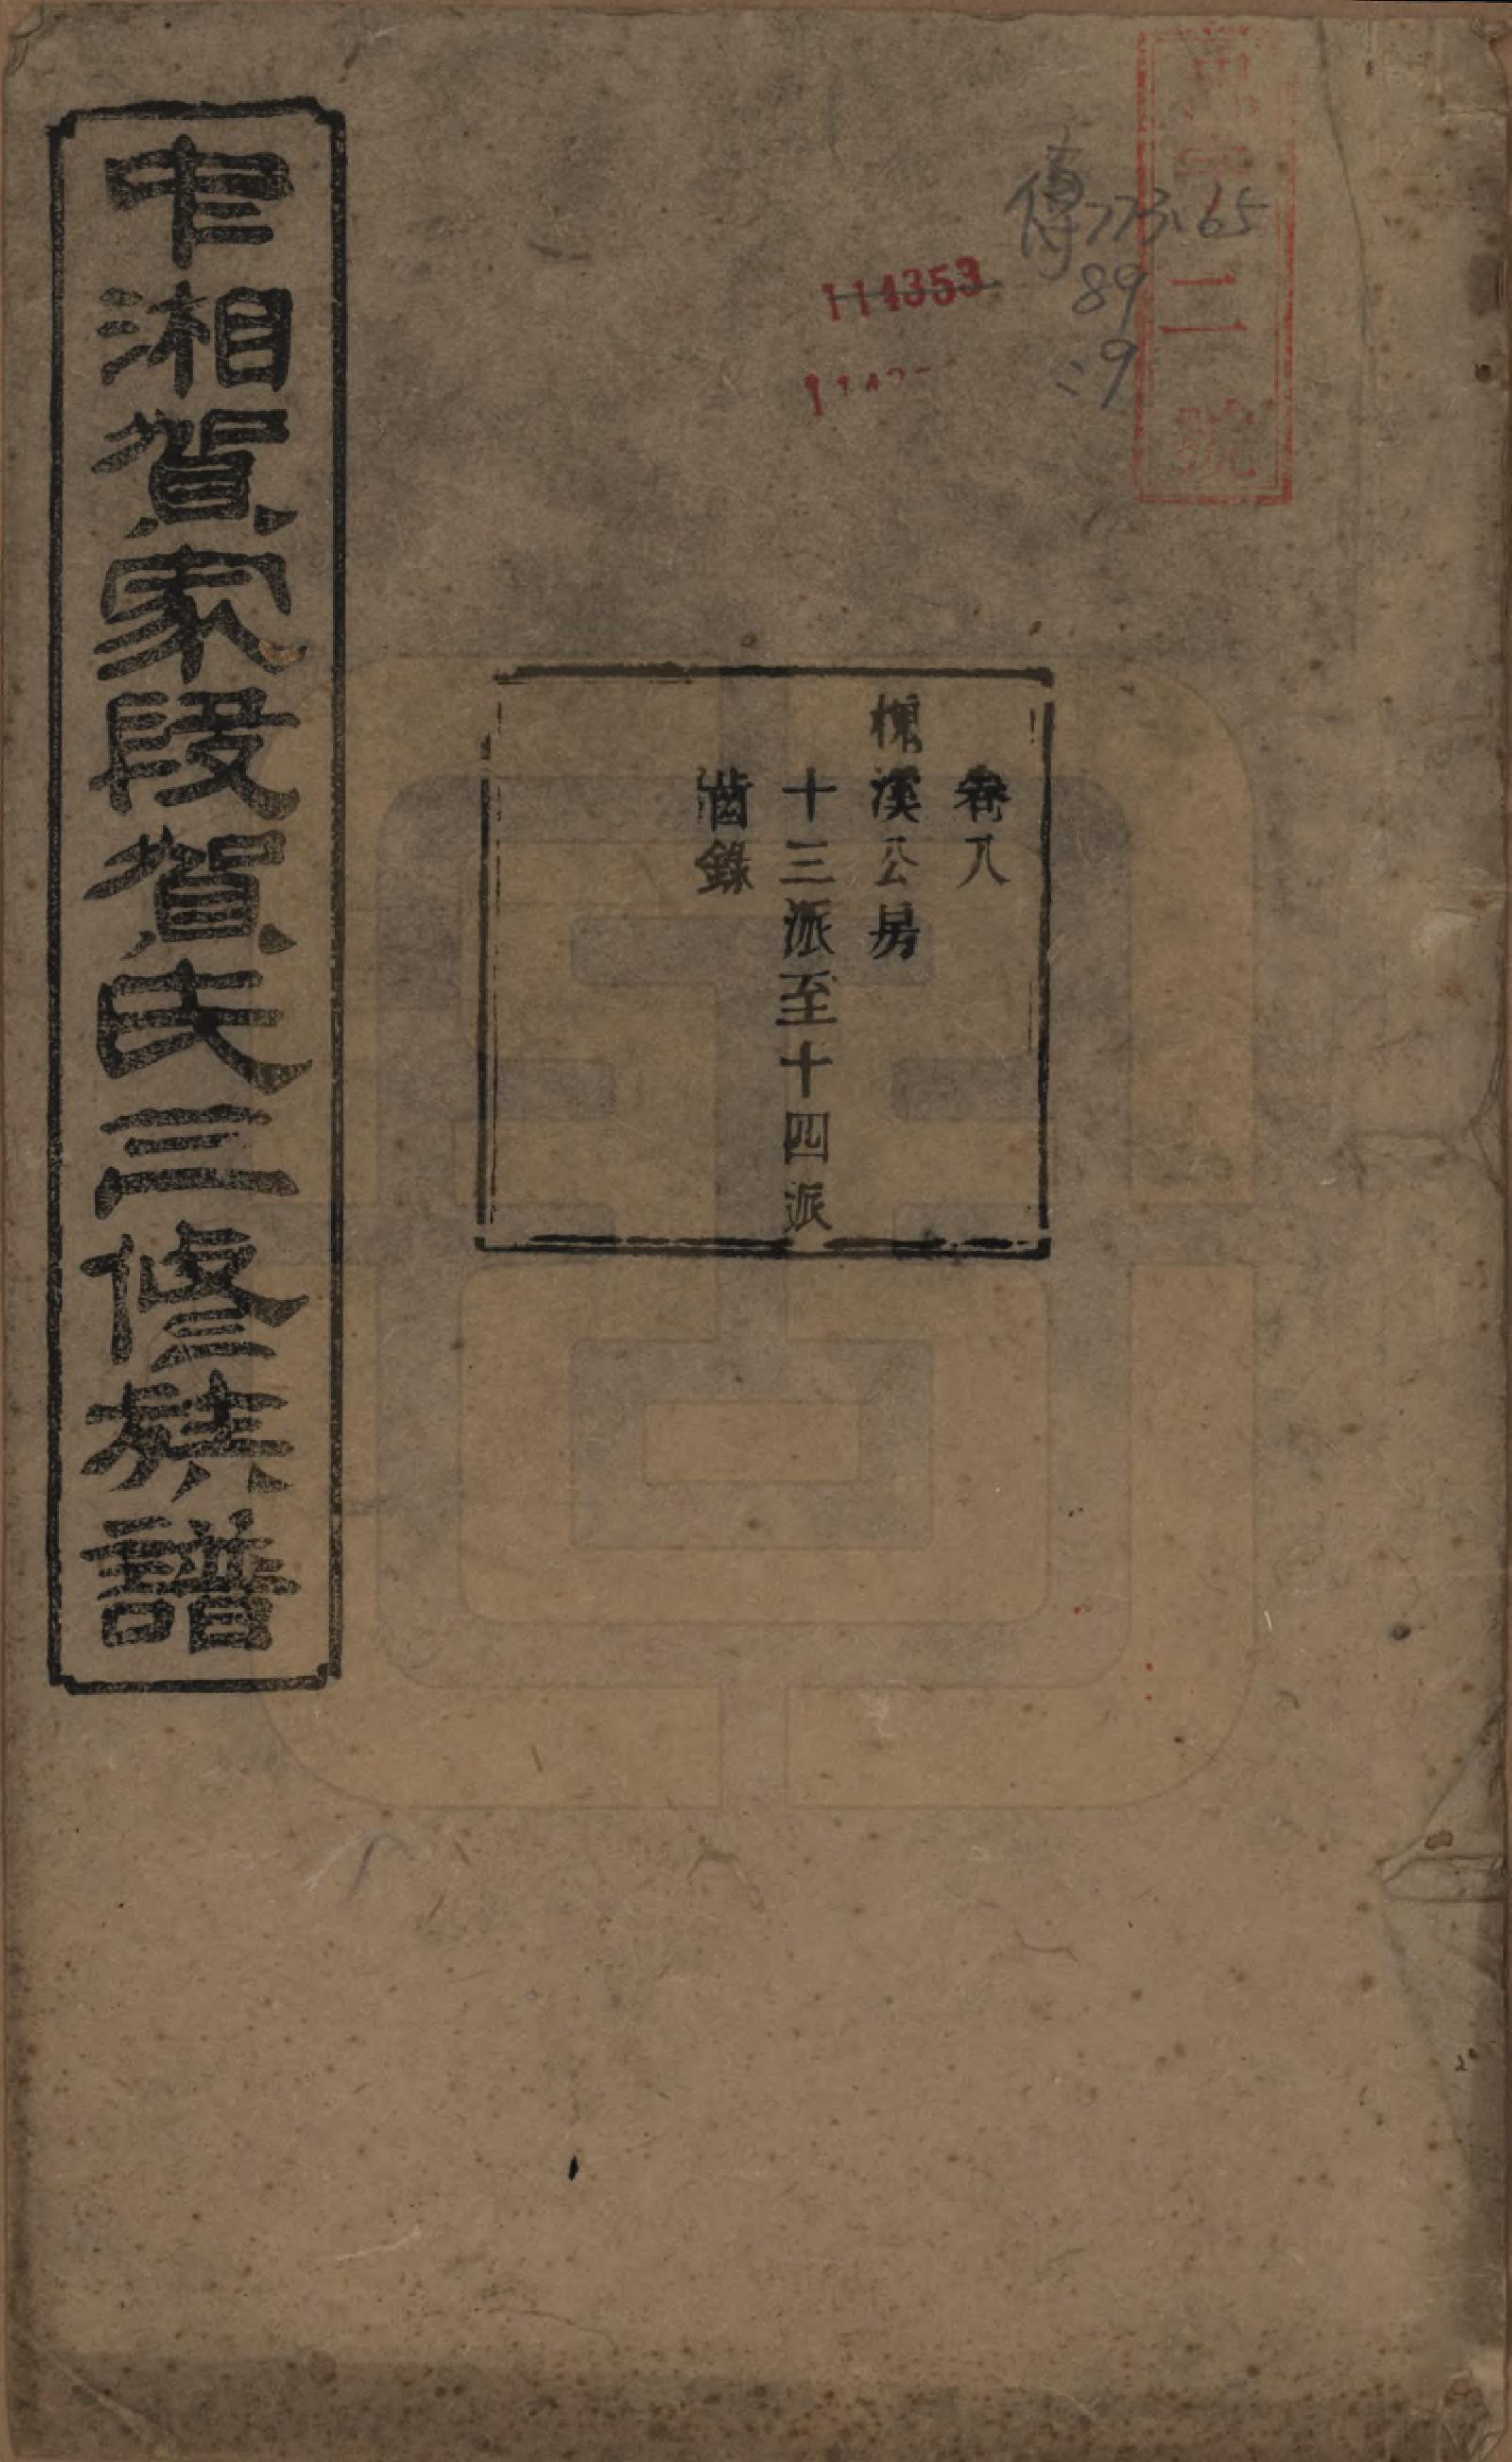 二號
傳773.65
89
:9
114353
卷八
槐溪公房
十三派至十四派
齒錄
中湘賀家段賀氏三修族譜